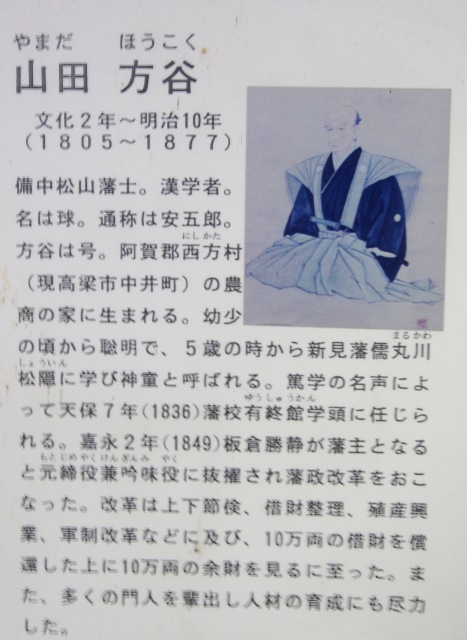 やまだ ほうこく
山田 方谷
文化2年～明治10年
（1805～1877）
備中松山藩士。漢学者。
名は球。通称は安五郎。
にしかた
方谷は号。阿賀郡西方村
（現高梁市中井町）の農
商の家に生まれる。幼少
まるかわ
の頃から聡明で、5歳の時から新見藩儒丸川
しょういん
松隠に学び神童と呼ばれる。篤学の名声によ
ゆうしゅうかん
って天保7年(1836)藩校有終館学頭に任じら
れる。嘉永2年(1849)板倉勝静が藩主となる
もとじめやくけんぎんみ やく
と元締役兼吟味役に抜擢され藩政改革をおこ
なった。改革は上下節倹、借財整理、殖産興
業、軍制改革などに及び、10万両の借財を償
還した上に10万両の余財を見るに至った。ま
た、多くの門人を輩出し人材の育成にも尽力
した。